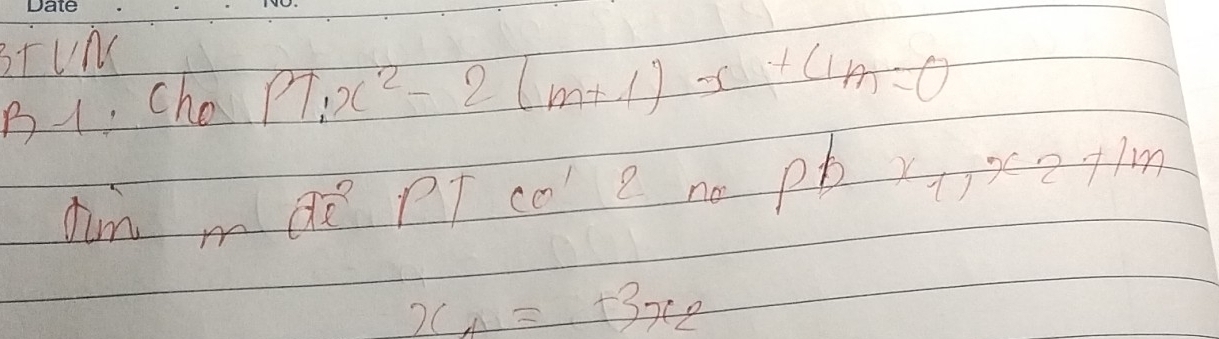 Date No.
BTVN
B1: Cho PT: x² - 2(m+1)x + 4m = 0
Tìm m để PT có 2 no pb x₁, x₂ t/m
x₁ = +3x₂